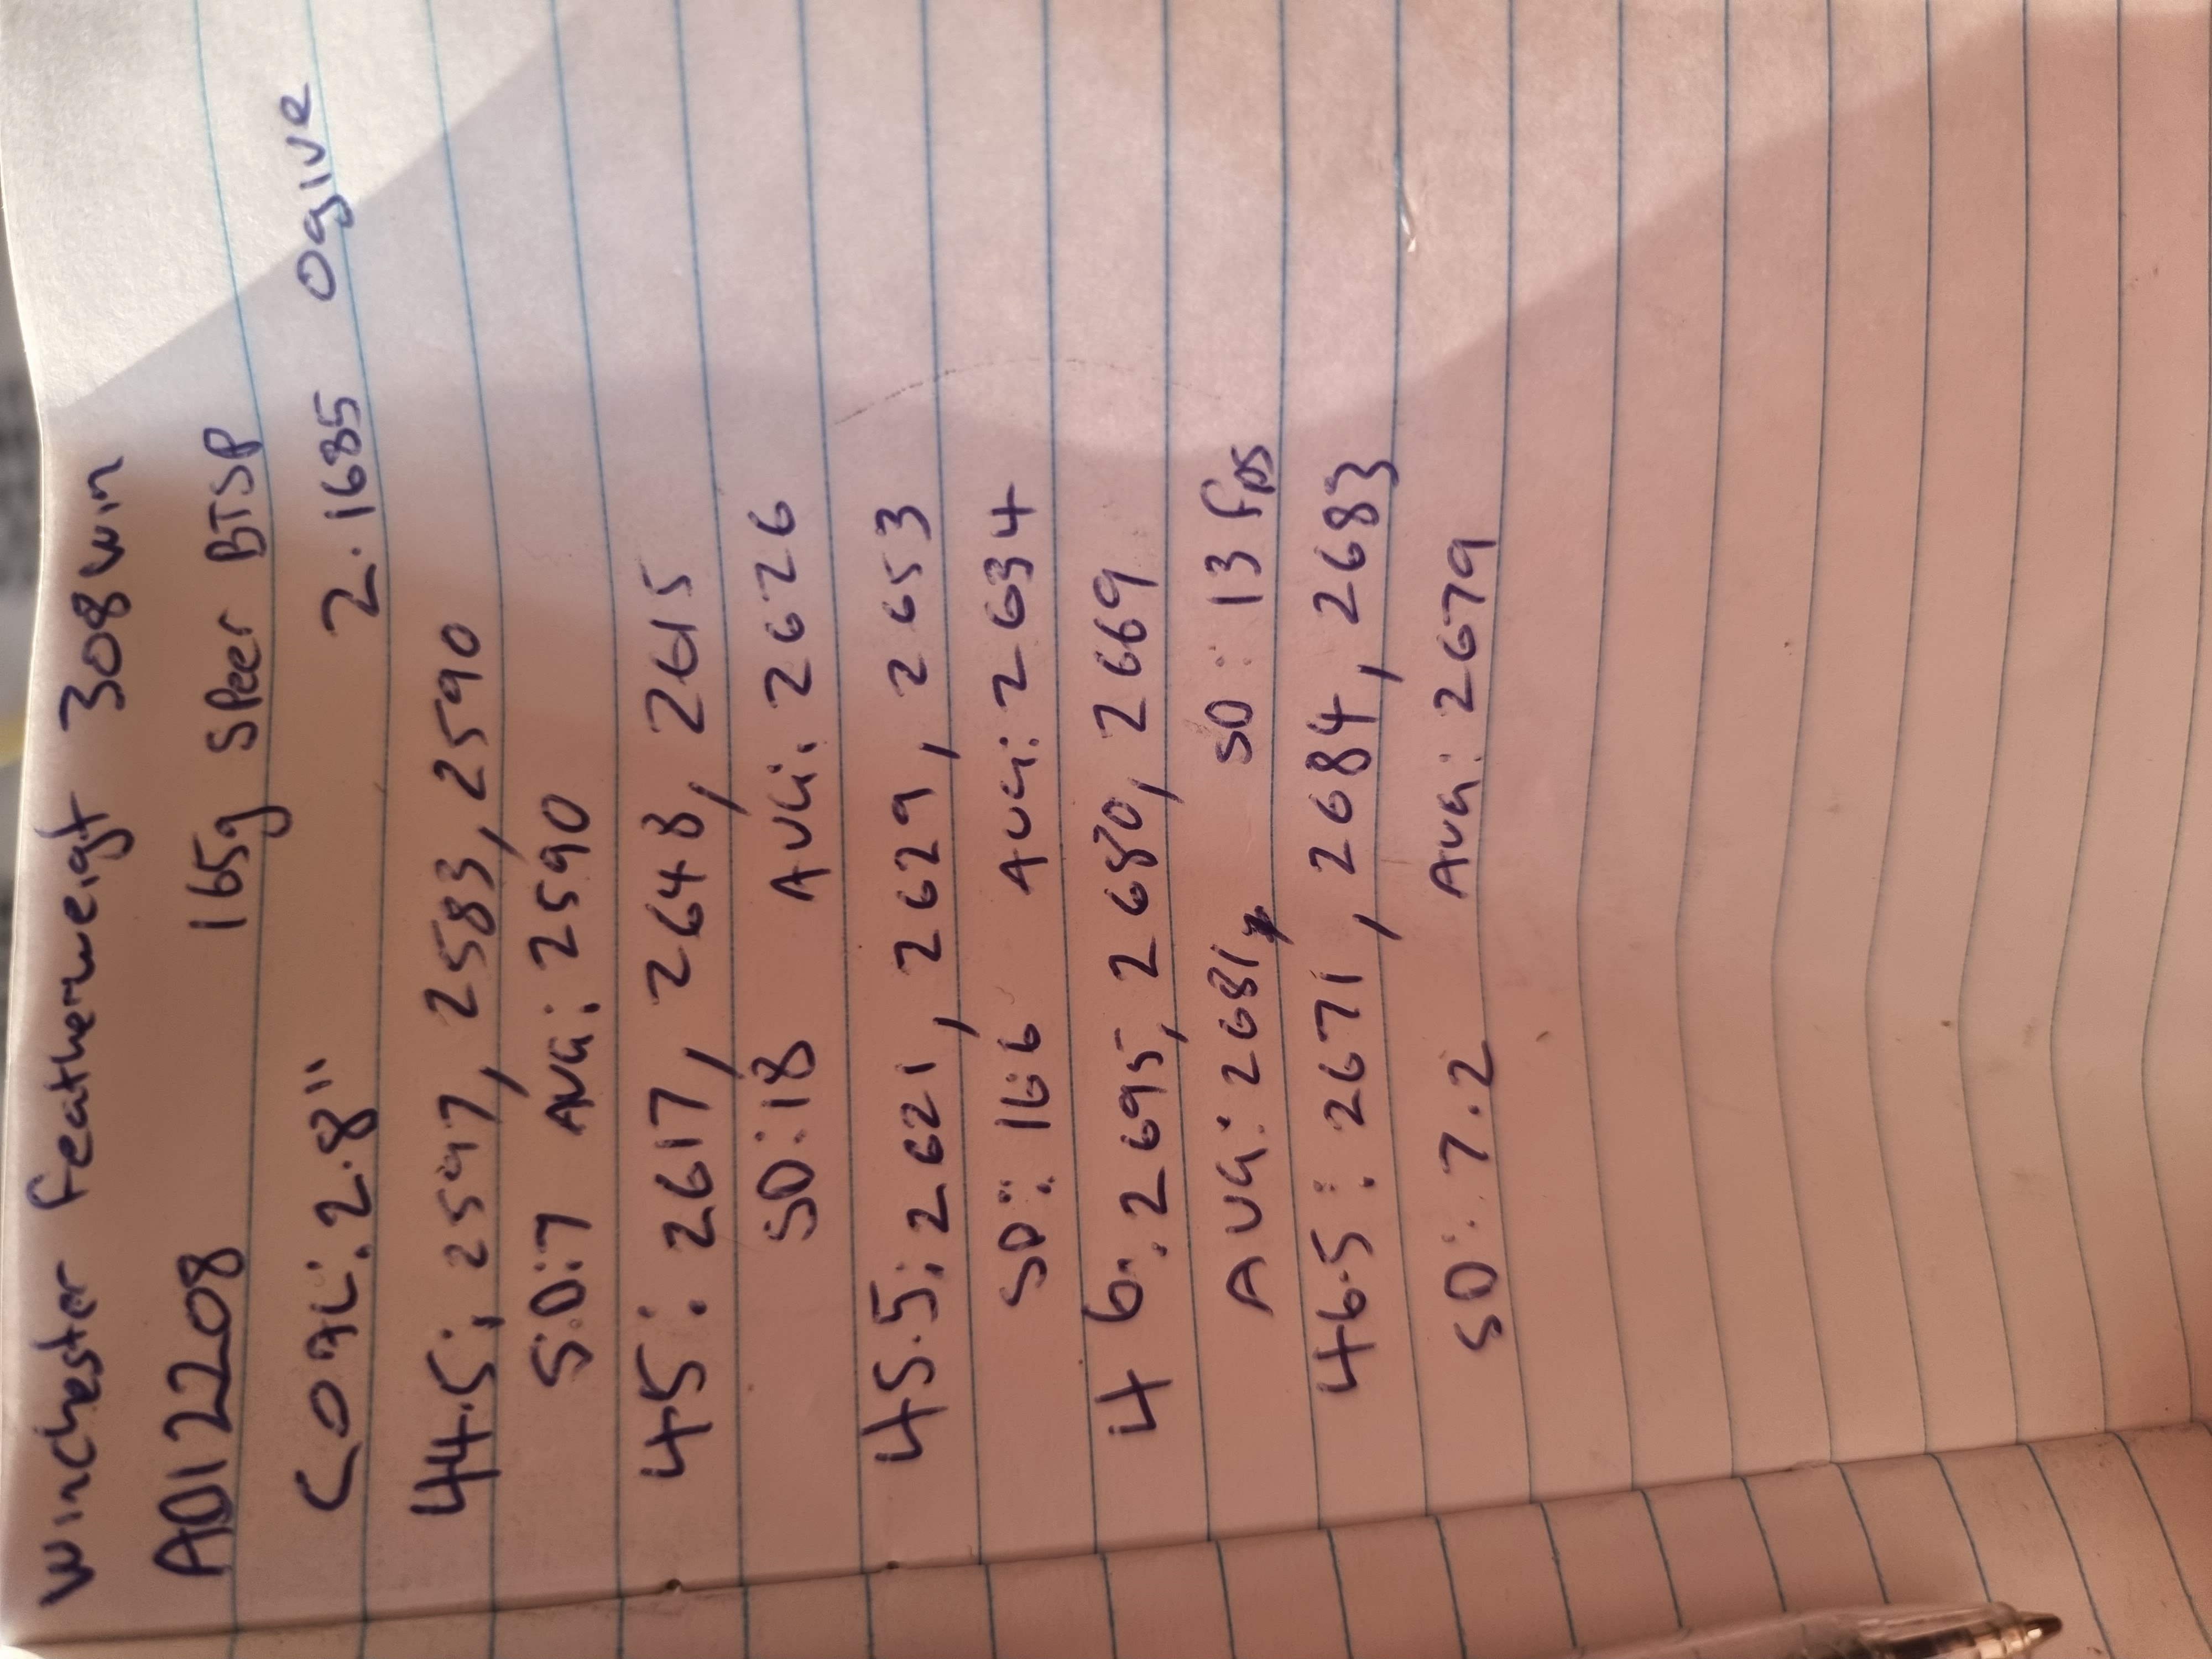 Winchester Featherweigt 308win
ADI 2208 165g Speer BTSP
COAL: 2.8" 2.1685 Ogive
44.5: 2597, 2583, 2590
S.D:7 AVG: 2590
45: 2617, 2648, 2615
SD:18 AVG: 2626
45.5: 2621, 2629, 2653
SD: 16.6 AVG: 2634
46: 2695, 2680, 2669
AVG: 2681, SD: 13 fps
46.5: 2671, 2684, 2683
SD: 7.2 AVG: 2679